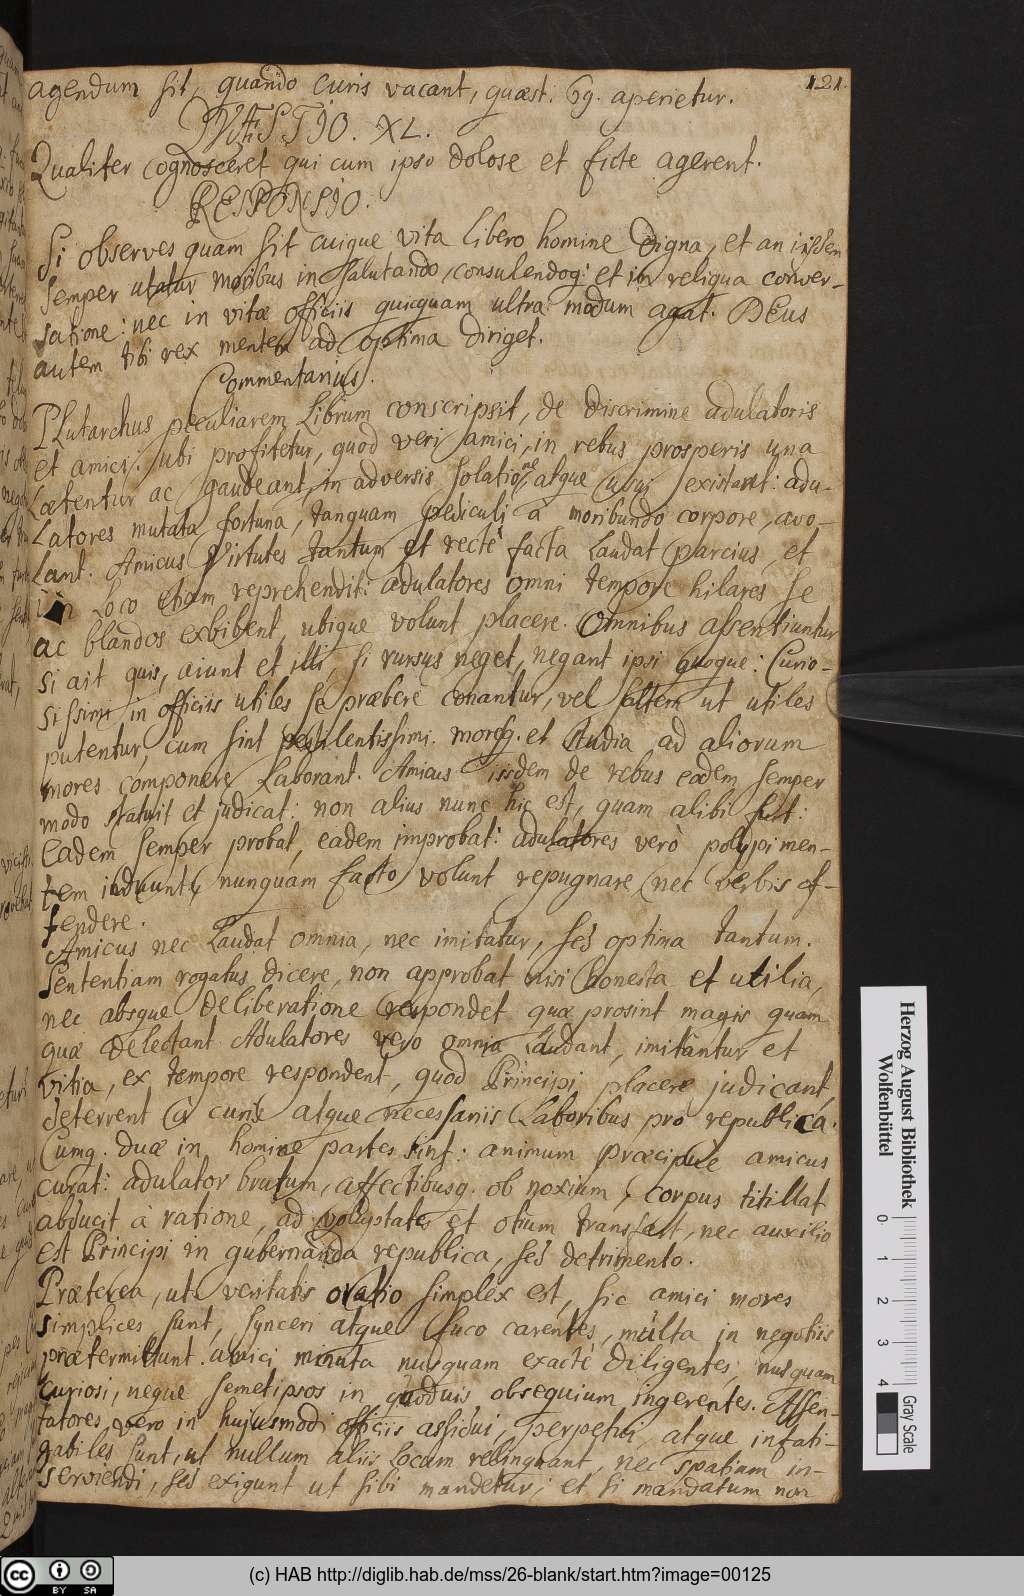 121.
agendum sit, quando curis vacant, quæst. 69. aperietur.
QVÆSTIO. XL.
Qualiter cognosceret qui cum ipso dolose et ficte agerent.
RESPONSIO.
Si observes quam sit cuique vita libero homine digna, et an iisdem
semper utatur moribus in salutando, consulendoq: et in reliqua conver-
satione: nec in vitæ officiis quicquam ultra modum agat. DEus
autem tibi rex mentem ad optima diriget.
Commentarius.
PLutarchus peculiarem Librum conscripsit, de discrimine adulatoris
et amici: ubi profitetur, quod veri amici, in rebus prosperis una
Lætentur ac gaudeant, in adversis solationè, atque usui existant: adu-
Latores mutata fortuna, tanquam pediculi à moribundo corpore, avo-
Lant. Amicus Virtutes tantum et rectè facta Laudat parcius, et
in Loco etiam reprehendit: adulatores omni tempore hilares se
ac blandos exhibent, ubique volunt placere. Omnibus assentiuntur
si ait quis, aiunt et illi, si rursus neget, negant ipsi quoque: Curio-
sissimi in officiis utiles se præbere conantur, vel saltem ut utiles
putentur, cum sint pestilentissimi. moresq. et studia ad aliorum
mores componere Laborant. Amicus iisdem de rebus eadem semper
modo statuit et judicat: non alius nunc hic est, quam alibi fuit:
Eadem semper probat, eadem improbat: adulatores verò polypi men-
tem induunt, nunquam facto volunt repugnare nec verbis of-
fendere.
Amicus nec Laudat omnia, nec imitatur, sed optima tantum.
Sententiam rogatus dicere, non approbat nisi honesta et utilia,
nec absque deliberatione respondet quæ prosint magis quam
quæ delectant Adulatores vero omnia Laudant, imitantur et
vitia, ex tempore respondent, quod Principi placere judicant,
deterrent à curis atque necessariis Laboribus pro republica.
Cumq. duæ in homine partes sint: animum præcipuè amicus
curat: adulator brutum, affectibusq. obnoxium, corpus titillat
abducit à ratione, ad voluptates et otium transfert, nec auxilio
est Principi in gubernanda republica, sed detrimento.
Præterea, ut veritatis oratio simplex est, sic amici mores
simplices sunt, synceri atque fuco carentes, multa in negotiis
prætermittunt amici minuta nusquam exactè diligentes, nusquam
curiosi, neque semetipsos in quoduis obsequium ingerentes. Assen-
tatores vero in hujusmodi officiis assidui, perpetui atque infati-
gabiles sunt, ut nullum aliis Locum relinquant, nec spatium in-
serviendi, sed exigunt ut sibi mandetur; et si mandatum non
Herzog August Bibliothek
Wolfenbüttel
0 1 2 3 4
Gray Scale
cc BY SA
(c) HAB http://diglib.hab.de/mss/26-blank/start.htm?image=00125